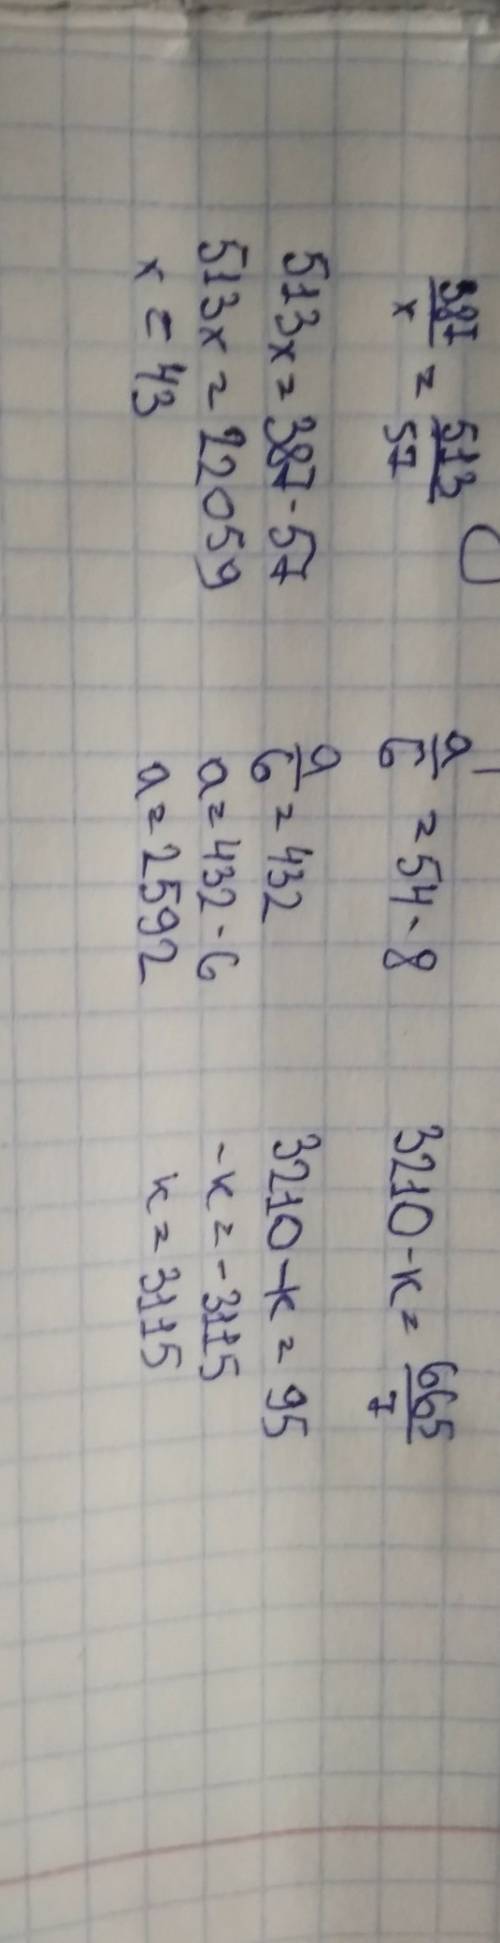 387/x = 513/57
513x = 387 · 57
513x = 22059
x = 43
a/6 = 54 · 8
a/6 = 432
a = 432 · 6
a = 2592
3210 - к = 665/7
3210 - к = 95
-к = -3115
к = 3115